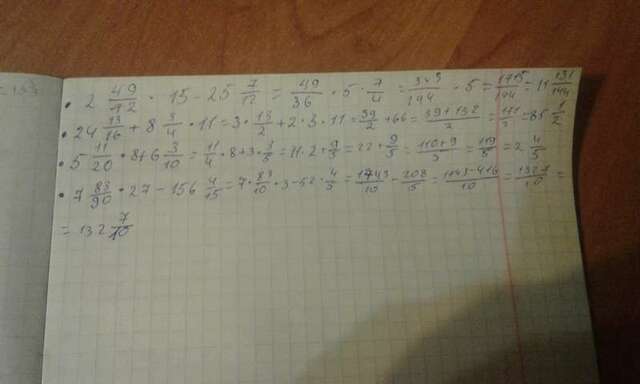 • 2 49/72 · 15 - 25 7/12 = 49/36 · 5 · 7/4 = 343/144 · 5 = 1715/144 = 11 131/144
• 24 13/16 + 8 3/4 · 11 = 3 · 13/2 + 2 · 3 · 11 = 39/2 + 66 = 39+132/2 = 171/2 = 85 1/2
• 5 11/20 · 8 + 6 3/10 = 11/4 · 8 + 3 · 3/5 = 11 · 2 + 9/5 = 22 + 9/5 = 110+9/5 = 119/5 = 2 4/5
• 7 83/90 · 27 - 156 4/15 = 7 · 83/10 · 3 - 52 · 4/5 = 1743/10 - 208/5 = 1743-416/10 = 1327/10 =
= 132 7/10